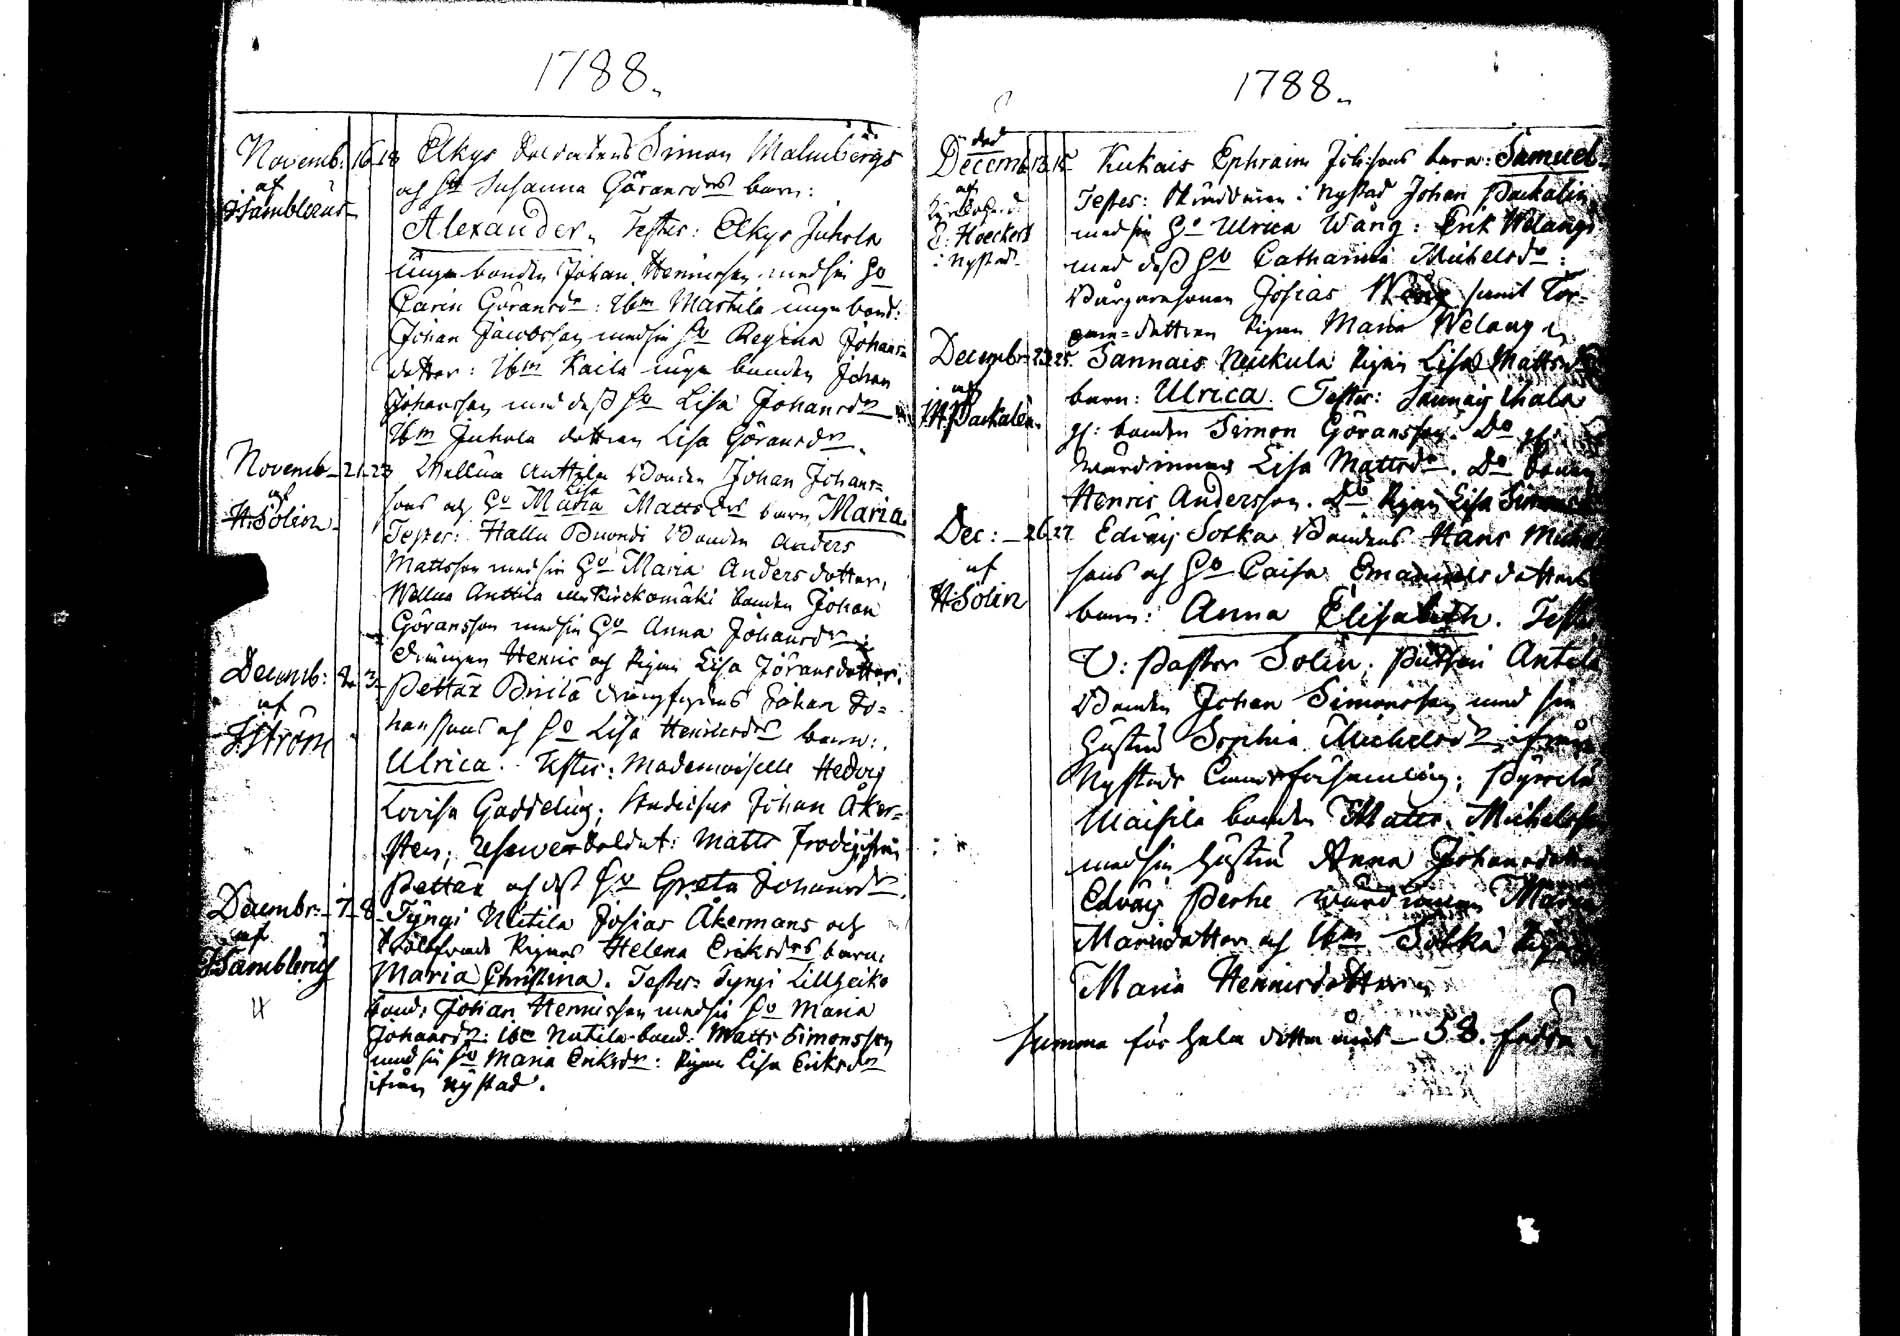 1788.
Novemb: 16 18 Elkys Soldatens Simon Malmbergs
af
J Samblerus
och Ho Susanna Göransdrs barn:
Alexander. Testes: Elkys Juhola
unga bonden Johan Henricsson med sin Ho
Carin Göransdr: Ibm Martila unga bond:
Johan Jacobsson med sin Ho Regina Johans=
dotter: Ibm Kaila unge bonden Johan
Johansson med dess Ho Lisa Johansdr
Ibm Juhola dottren Lisa Göransdr.
Novemb 21 23 Wellua Anttila Bonden Johan Johans=
af
H. Solin
Lisa
sons och Ho Maria Mattsdrs barn Maria.
Testes: Hallu Buondi Bonden Anders
Mattsson med sin Ho Maria Andersdotter,
Wellua Anttila Kirckomäki bonden Johan
Göransson med sin Ho Anna Johansdr:
drängen Henric och Pigan Lisa Jöransdotter.
Decemb: 2 3 Pettäx Birilä Johan Jo=
af
J Ström
hanssons och Ho Lisa Henricsdrs barn:
Ulrica. Testes: Mademoiselle Hedvig
Lovisa Gaddeling; Studiosus Johan Åker=
sten; Soldat: Matts Frodig ifrån
Pettäx och dess Ho Greta Johansdr.
Decembr: 7 8 Tyngi Nutila Josias Åkermans och
af
J Samblerus
Pigans Helena Eriksdrs barn:
Maria Christina. Testes: Tyngi Lillzeiko
bond: Johan Henricsson med sin Ho Maria
Johansdr: Ibm Nutila bond: Matts Simonsson
med sin Ho Maria Eriksdr: Pigan Lisa Eriksdr
ifrån Nystad.
1788.
död
Decemb 13 15 Kukais Ephraim Joh:sons barn: Samuel
af
E: Hoeckert
i Nystad
Testes: i Nystad Johan Packalin
med sin Ho Ulrica Wäng: Erik Welangs
med dess Ho Catharina Michelsdr:
Borgaresonen Josias Wäng samt
dottren Pigan Maria Welang
Decembr 23 25 Sannais Neukula Pigan Lisa Mattsdrs
af
H Packalén
barn: Ulrica. Testes: Sannais Uhala
gl: bonden Simon Göransson. Do gl:
wärdinnan Lisa Mattsdr. Do bonden
Henric Andersson. Do Pigan Lisa Simonsdr
Dec: 26 27 Edvais Sotka Bondens Hans Michel
af
H. Solin
sons och Ho Caisa Emanuelsdotters
barn: Anna Elisabeth. Testes
V: Pastor Solin; Antila
Bonden Johan Simonsson med sin
Hustru Sophia Michelsdr ifrån
Nystads församling; Pyrrilä
Maisila bonden Matts Michelsson
med sin hustru Anna Johansdotter
Edvais Perhe wärdinnan Maria
Mariisdotter och Ibm Sotka Pigan
Maria Henricsdotter
Summa för hela detta året 58. födde